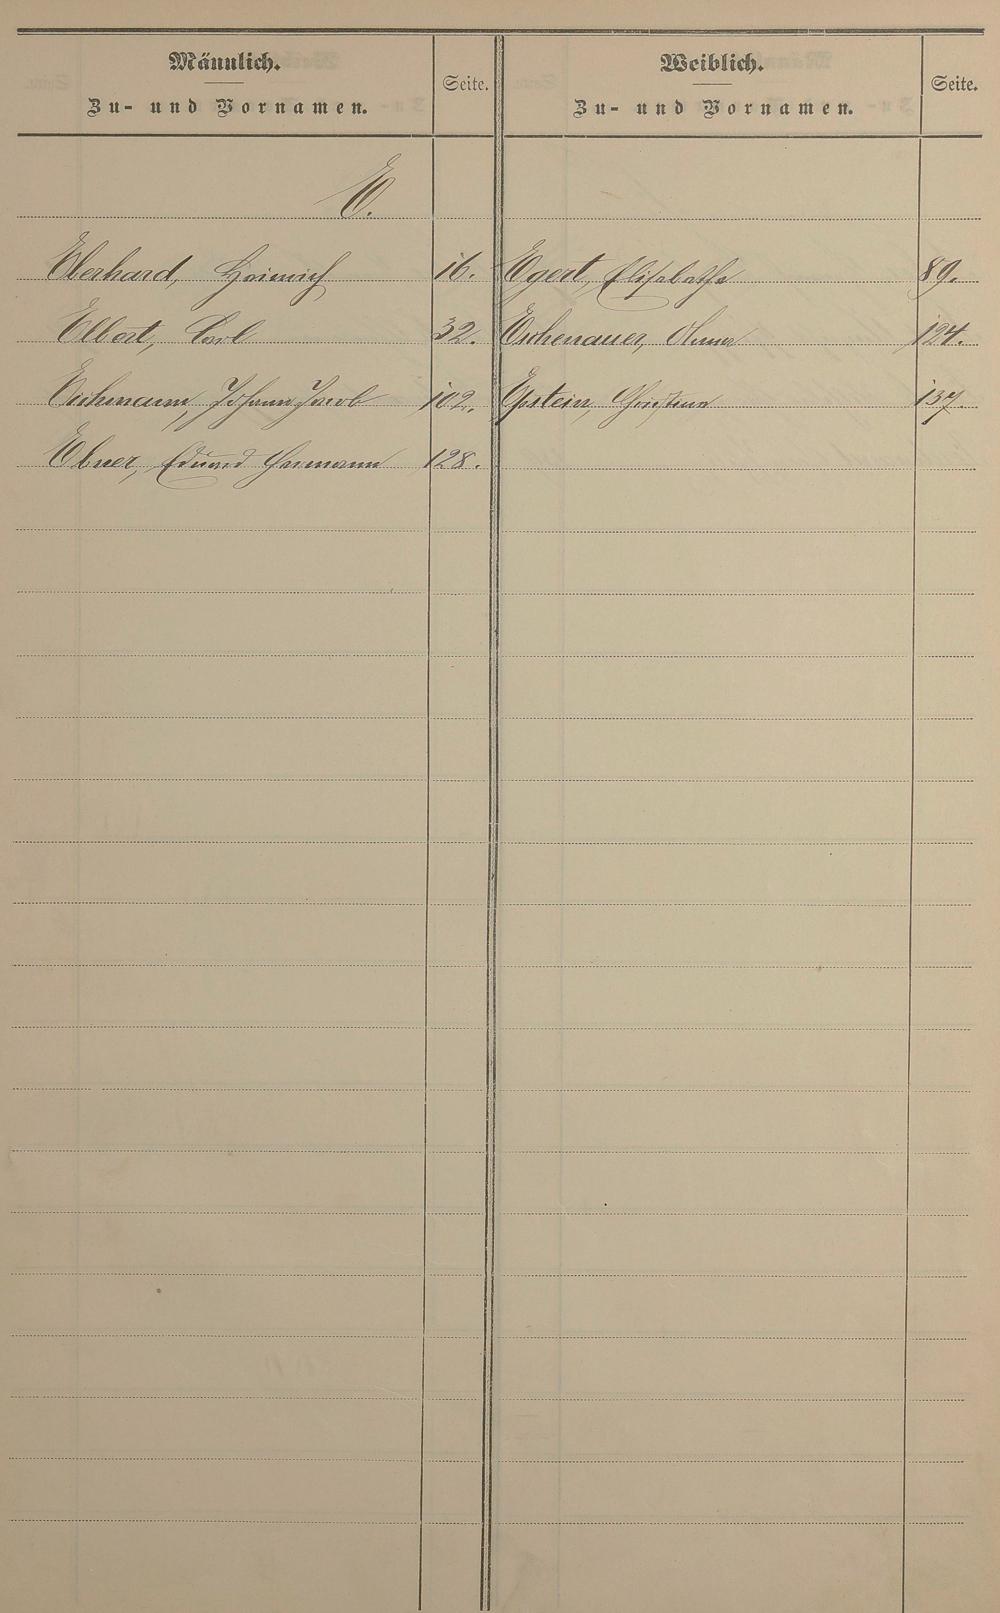 Männlich.
Zu- und Vornamen.
Seite.
Weiblich.
Zu- und Vornamen.
Seite.
E.
Eberhard, Heinrich 16.
Egert, Elisabethe 89.
Elbert, Carl 32.
Eschenauer, Anna 124.
Eichmann, Johann Jacob 102.
Epstein, Christine 137.
Ebner, Eduard Hermann 128.